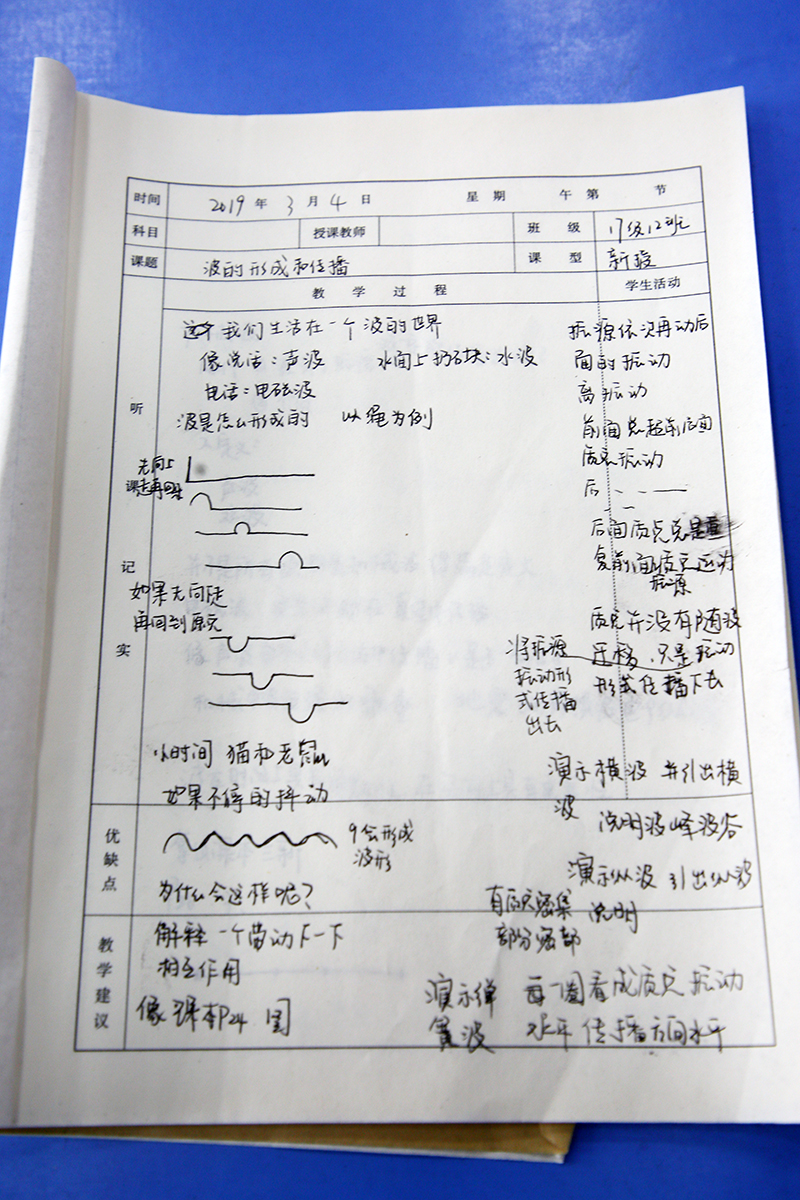 时间 2019年 3月 4日 星期 午第 节
科目 授课教师 班级 17级12班
课题 波的形成和传播 课型 新授
教学过程 学生活动
听课记实
我们生活在一个波的世界
像说话:声波 水面上扔石块:水波
电话:电磁波
波是怎么形成的 以绳为例
先向上
再回
如果先向
再回到原点
小时间 猫和老鼠
如果不停的抖动
振源依次再动后
面的振动
离振动
前面总超前后面
质点振动
后
后面质点总是重
复前面质点运动
振源
质点并没有随波
迁移,只是振动
形式传播下去
将振源
振动形
式传播
出去
演示横波 并引出横
波 说明波峰波谷
优缺点
会形成
波形
演示纵波 引出纵波
为什么会这样呢?
有质点密集 说明
部分密部
教学建议
解释 一个带动下一下
相互作用
像课本P24 图
演示弹 每一圈看成质点 振动
簧波 水平 传播方向水平